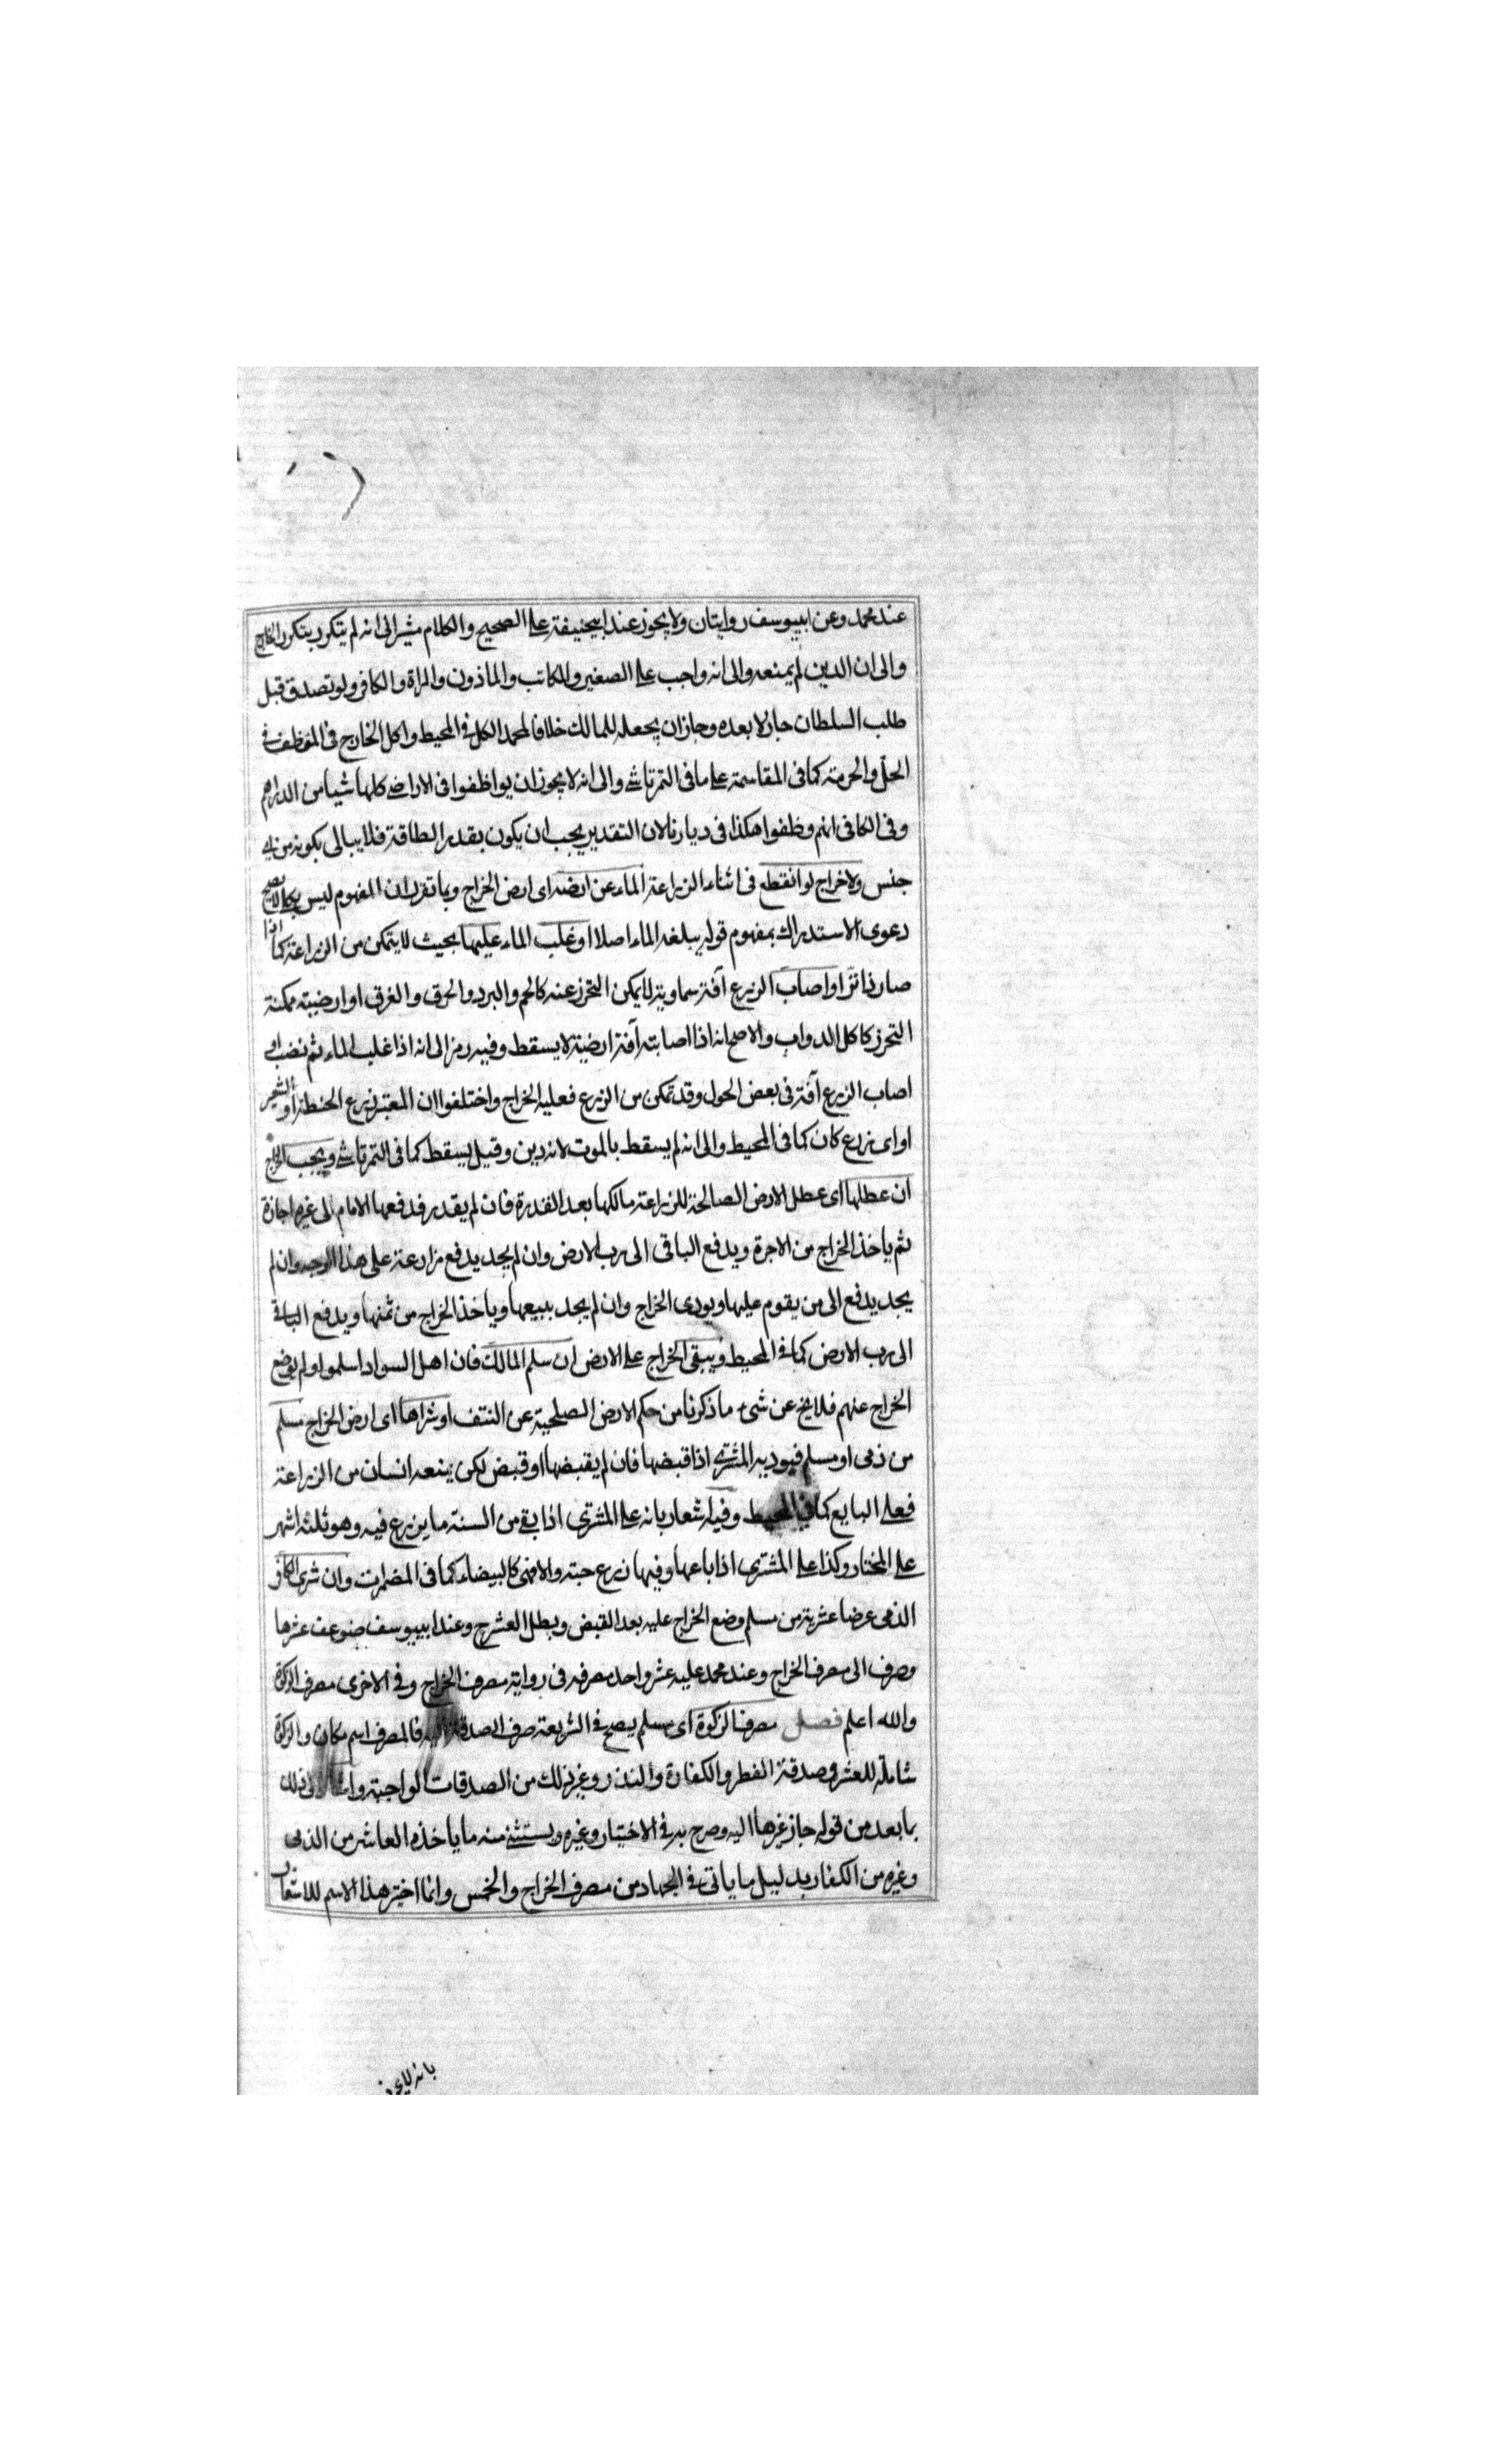 عند محمد وعن ابييوسف روايتان ولا يجوز عند ابيحنيفة على الصحيح والكلام مشير الى انه لم يتكرر بتكرر الخارج
والى ان الدين لم يمنعه والى انه واجب على الصغير والمكاتب والماذون والمراة والكافر ولو تصدق قبل
طلب السلطان جاز لا بعده وجاز ان يجعله للمالك خلافا لمحمد الكل فى المحيط واكل الخارج فى الموظف فى
الحل والحرمة كما فى المقاسمة على ما فى التمرتاشى والى انه لا يجوز ان يواظفوا فى الاراضى كلها شيا من الدراهم
وفى الكافى انهم وظفوا هكذا فى ديارنا لان التقدير يجب ان يكون بقدر الطاقة فلا يبالى بكونه من اى
جنس ولا خراج لو انقطع فى اثناء الزراعة الماء عن ارضه اى ارض الخراج وبما تقرر ان المفهوم ليس بكلى لا يصح
دعوى الاستدراك بمفهوم قوله يبلغه الماء اصلا او غلب الماء عليها بحيث لا يتمكن من الزراعة كما اذا
صار ذا نزا او اصاب الزرع آفة سماوية لا يمكن التحرز عنه كالحر والبرد والحرق والغرق او ارضية ممكنة
التحرز كاكل الدواب والاصح انه اذا اصابته آفة ارضية لا يسقط وفيه رمز الى انه اذا غلب الماء ثم نضب او
اصاب الزرع آفة فى بعض الحول وقد تمكن من الزرع فعليه الخراج واختلفوا ان المعتبر زرع الحنطة او الشعير
او اى زرع كان كما فى المحيط والى انه لم يسقط بالموت لانه دين وقيل يسقط كما فى التمرتاشى ويجب الخراج
ان عطلها اى عطل الارض الصالحة للزراعة مالكها بعد القدرة فان لم يقدر فدفعها الامام الى غيره اجارة
ثم ياخذ الخراج من الاجرة ويدفع الباقى الى رب الارض وان لم يجد يدفع مزارعة على هذا الوجه وان لم
يجد يدفع الى من يقوم عليها ويودى الخراج وان لم يجد يبيعها وياخذ الخراج من ثمنها ويدفع الباقى
الى رب الارض كما فى المحيط ويبقى الخراج على الارض ان سلم المالك فان اهل السواد اسلموا ولم يوضع
الخراج عنهم فلا يخ عن شى ما ذكرنا من حكم الارض الصلحية عن النتف او شراها اى ارض الخراج مسلم
من ذمى او مسلم فيوديه المشترى اذا قبضها فان لم يقبضها او قبض لكن ينعه انسان من الزراعة
فعلى البايع كما فى المحيط وفيه اشعار بانه على المشترى اذا بقى من السنة ما يزرع فيه وهو ثلثة اشهر
على المختار وكذا على المشترى اذا باعها وفيها زرع حبته والا فهى كالبيضاء كما فى المضمرات وان شرى الكافر
الذمى عرضا عشرية من مسلم وضع الخراج عليه بعد القبض وبطل العشر ح وعند ابييوسف ضوعف عشرها
وصرف الى مصرف الخراج وعند محمد عليه عشر واحد مصرفه فى رواية مصرف الخراج وفى الاخرى مصرف الزكوة
والله اعلم فصل مصرف الزكوة اى مسلم يصح فى الشريعة صرف الصدقة اليه فالمصرف اسم مكان والزكوة
شاملة للعشر وصدقة الفطر والكفارة والنذر وغير ذلك من الصدقات الواجبة واشار الى ذلك
بما بعد من قوله جاز غيرها اليه وصرح به فى الاختيار وغيره ويستثنى منه ما ياخذه العاشر من الذمى
وغيره من الكفار بدليل ما ياتى فى الجهاد من مصرف الخراج والخمس وانما اختير هذا الاسم للاشعار